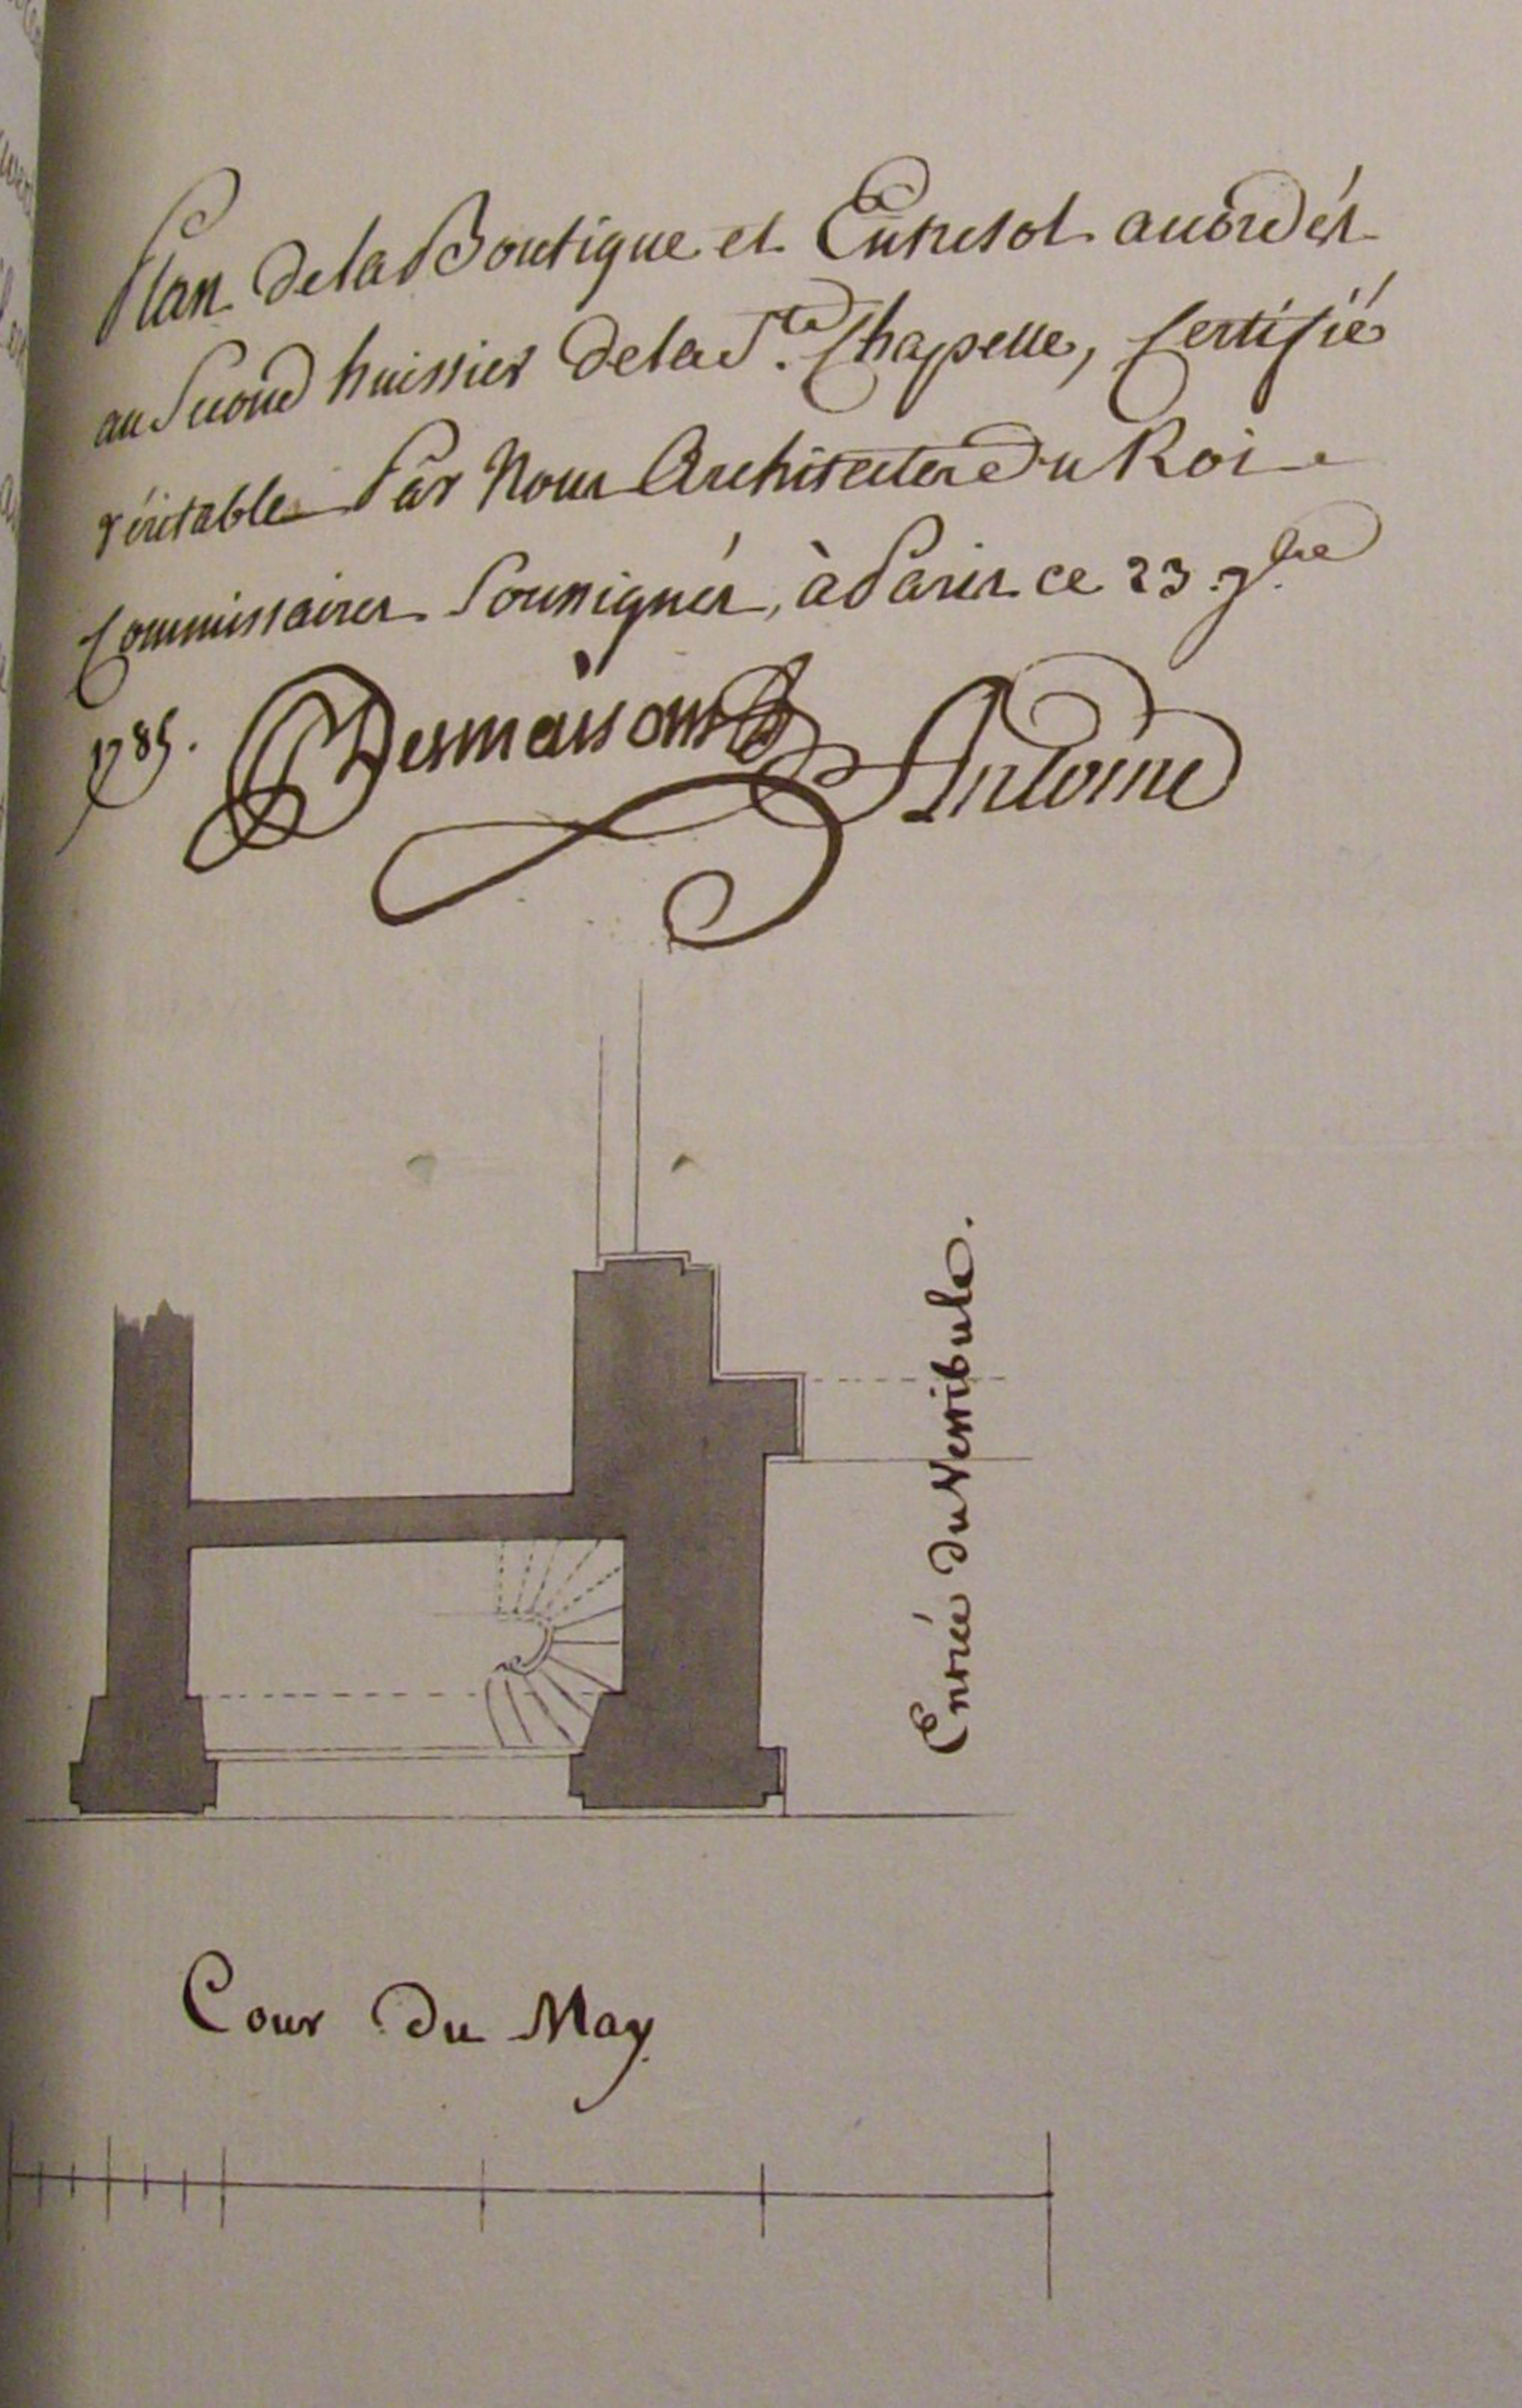 Plan de la Boutique et Entresol accordés
au second huissier de la S.te Chapelle, Certifié
véritable Par Nous Architectes du Roi
Commissaires Soussignés, à Paris ce 23 9.bre
1785. Desmaisons Antoine
Entrée du Vestibule.
Cour du May